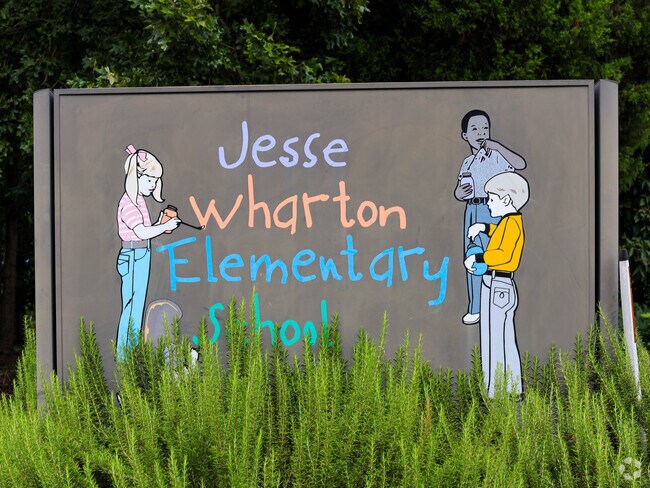 Jesse
Wharton
Elementary
School